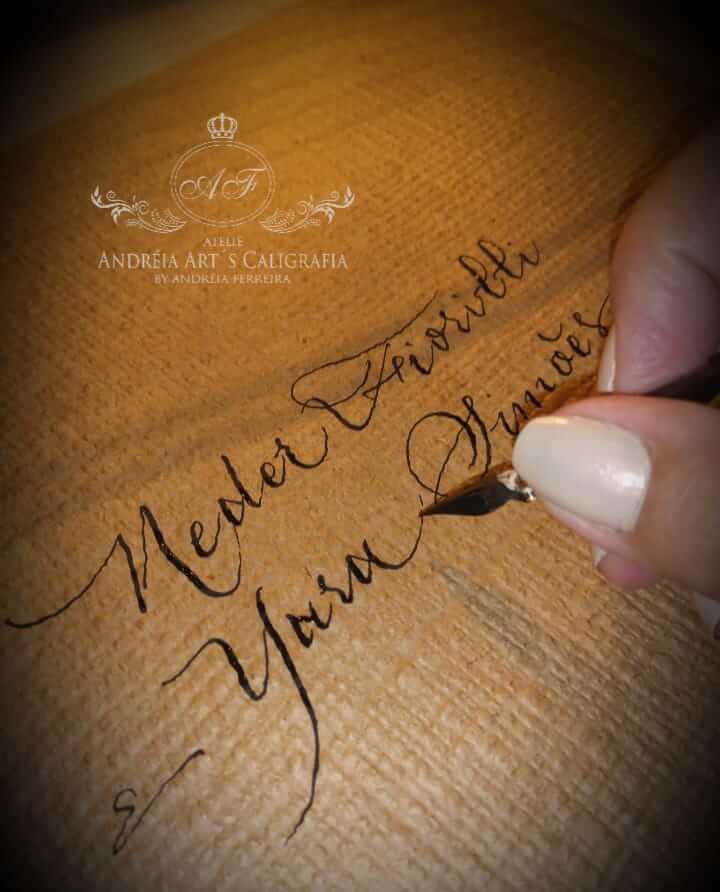 AF
ATELIE
ANDRÉIA ART´S CALIGRAFIA
BY ANDRÉIA FERREIRA
Neder Fiorilli
Yara Simões
&